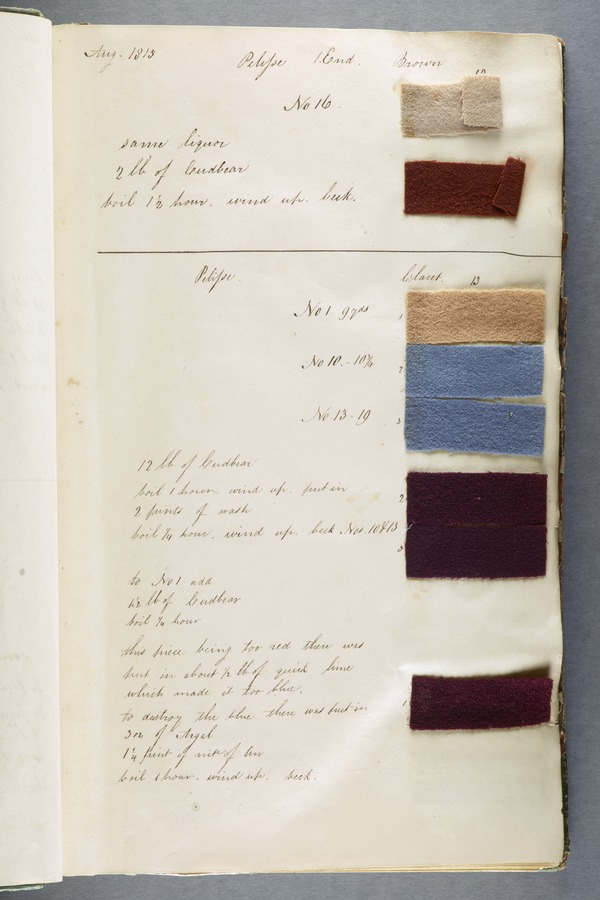 Aug. 1815 Pelisse 1 End. Brown
No 16.
same liquor
2 lb of Cudbear
boil 1½ hour. wind up. beck.
Pelisse. Claret. 13
No 1 9 yds 1
No 10. - 10¾ 2
No 13 - 19 3
12 lb of Cudbear
boil 1 hour wind up. put in 2
2 pints of wash
boil ¾ hour. wind up. beck Nos. 10 & 13
3
to No 1 add
1½ lb of Cudbear
boil ¾ hour
this piece being too red there was
put in about ½ lb of quick lime
which made it too blue.
to destroy the blue there was put in 1
3 oz of Argal
1¼ pint of nite of tin
boil 1 hour. wind up. beck.